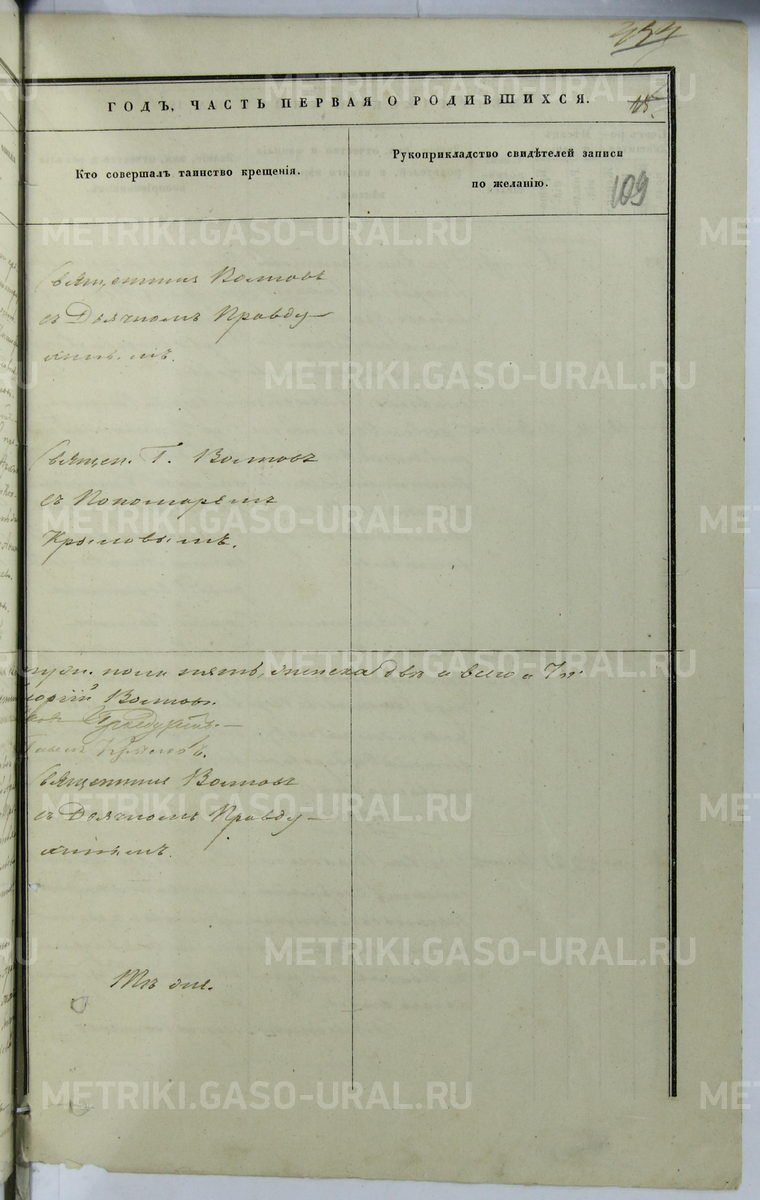 ГОДЪ, ЧАСТЬ ПЕРВАЯ О РОДИВШИХСЯ.
Кто совершалъ таинство крещенія.
Рукоприкладство свидѣтелей записи
по желанію.
109
Священникъ Волковъ
съ Дьячкомъ Правду-
хинымъ.
Священ. Г. Волковъ
съ Пономаремъ
Крыловымъ.
пола пять, женска два а всего 7
Волковъ.
Крыловъ.
Священникъ Волковъ
съ Дьячкомъ Правду-
хинымъ.
Тѣ же.
METRIKI.GASO-URAL.RU